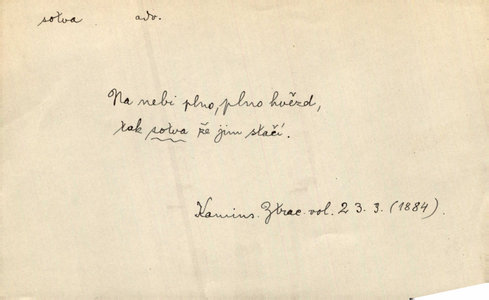 sotva adv.
Na nebi plno, plno hvězd,
tak sotva že jim stačí.
Kamins. Ztrac. vol. 2 3. 3. (1884).